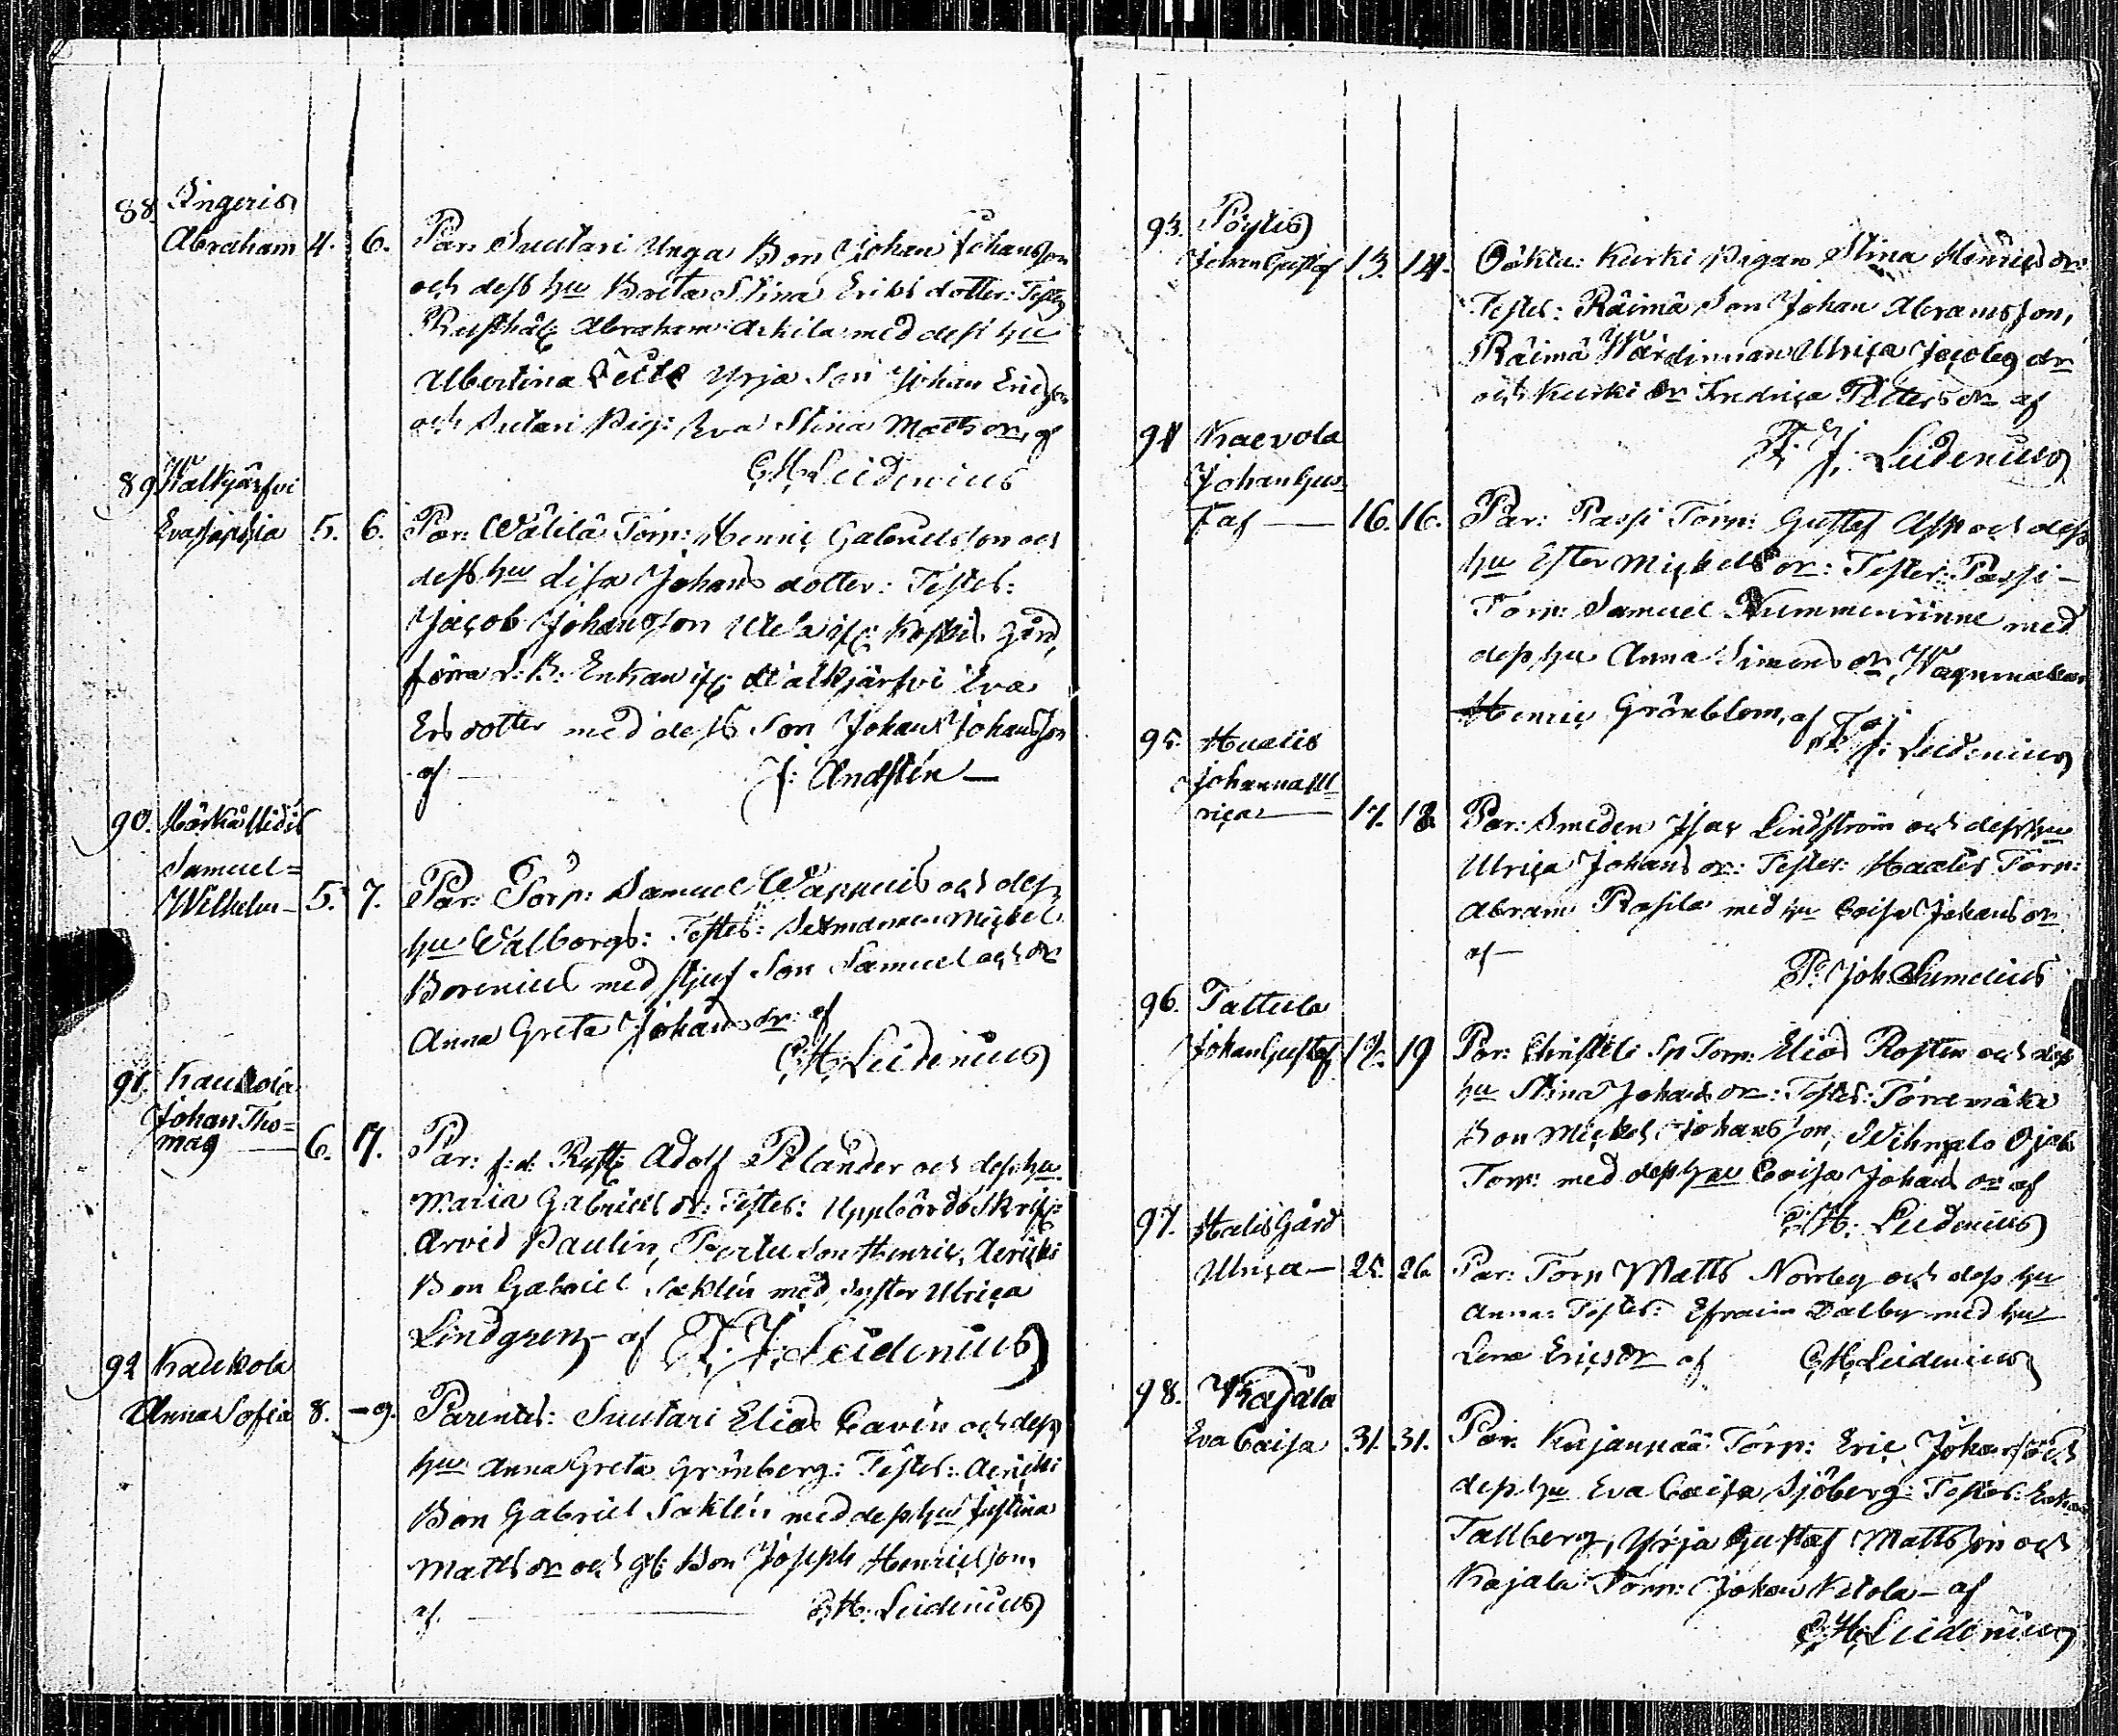 88. Ingeris
Abraham 4. 6. Par: Suutari Unga Bon Johan Johansson
och dess hu Breta Stina Eriks dotter: Testes
Rusthål: Abraham Arkila med dess hu
Albertina Yrja Son Johan Ericsson
och Sutari Pig: Eva Stina Matts dr, af
C.H. Leidenius
89 Walkjärfvi
Eva Sophia 5. 6. Par: Wälilä Torp: Henric Gabrielsson och
dess hu Lisa Johans dotter: Testes:
Jacob Johansson Uhla if: Koskis gård,
förra Enkan if: Walkjärfvi Eva
Ers dotter med dess Son Johan Johansson
af J: Andstén
90.
Samuel=
Wilhelm 5. 7. Par: Torp: Samuel Wappuis och dess
hu Walborgs: Testes: Sexmannen Mickel
Borenius med stjuf Son Samuel och dr
Anna Greta Johans dr: af
C.H. Leidenius
91. Kaukola
Johan Tho=
mas 6. 7. Par: f:d: Rusth: Adolf Pelander och dess hu
Maria Gabriels dr: Testes: Uppbörds Skrif:
Arvid Paulin, Pertu Son Henric, Aerikki
Bon Gabriel Saklén med Syster Ulrica
Lindgren, af F. J. Leidenius
92 Kaukola
Anna Sofia 8. 9. Parentes: Suutari Elias Cavén och dess
hu Anna Greta Grönberg: Testes: Aerikki
Bon Gabriel Saklén med dess hu Justina
Matts dr och gl: Bon Joseph Henricsson
af C.H. Leidenius
93. Pöytis
Johan Gustaf 13. 14. Oäkta: Kurki Pigan Stina Henrics dr:
Testes: Räimä Son Johan Abramsson,
Räimä Wärdinnan Ulrica Jacobs dr
och Kurki dr Fredrica Petters dr af
F. J. Leidenius
94 Kaevola
Johan Gus-
taf 16. 16. Par: Passi Torp: Gustaf Asp och dess
hu Ester Mickels dr: Testes: Passi
Torp: Samuel Nummerinne med
dess hu Anna Simons dr, Wagnmakar
Henric Grönblom, af
F. J: Leidenius
95. Haalis
Johanna Ul
rica 17. 18. Par: Smeden Isac Lindström och dess hu
Ulrica Johans dr: Testes: Haalis Torp:
Abram Rasila med hu Caisa Johans dr
af
P: Joh: Sumelius
96. Tattula
Johan Gustaf 19 Par: Christeli Sp Torp: Elias Rosten och dess
hu Stina Johans dr: Testes: Toramäki
Bon Mickel Johansson, Wihnalo Oja
Torp: med dess hu Caisa Johans dr af
C.H. Leidenius
97. Halis Gård
Ulrica 25. 26. Par: Torp Matts Norrby och dess hu
Anna: Testes: Efraim Dalberg med hu
Lena Erics dr af C.H. Leidenius
98. Kajala
Eva Caisa 31. 31. Par: Kujanpää Torp: Eric Johansson och
dess hu Eva Caisa Sjöberg: Testes: Enkan
Tallberg, Yrja Gustaf Mattsson och
Kajala Torp: Johan Ketola af
C.H. Leidenius